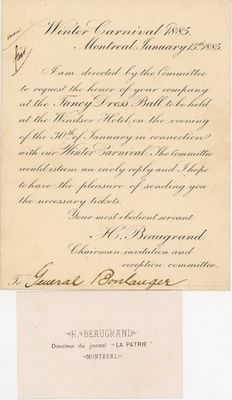 Winter Carnival 1885.
Montreal January 15th 1885.
I am directed by the Committee
to request the honor of your company
at the Fancy Dress Ball, to be held
at the Windsor Hotel, on the evening
of the 30th of January in connection
with our Winter Carnival. The Committee
would esteem an early reply and I hope
to have the pleasure of sending you
the necessary tickets.
Your most obedient servant
H. Beaugrand,
Chairman invitation and
reception committee.
To General Boulanger
H. BEAUGRAND
Directeur du journal "LA PATRIE"
MONTREAL